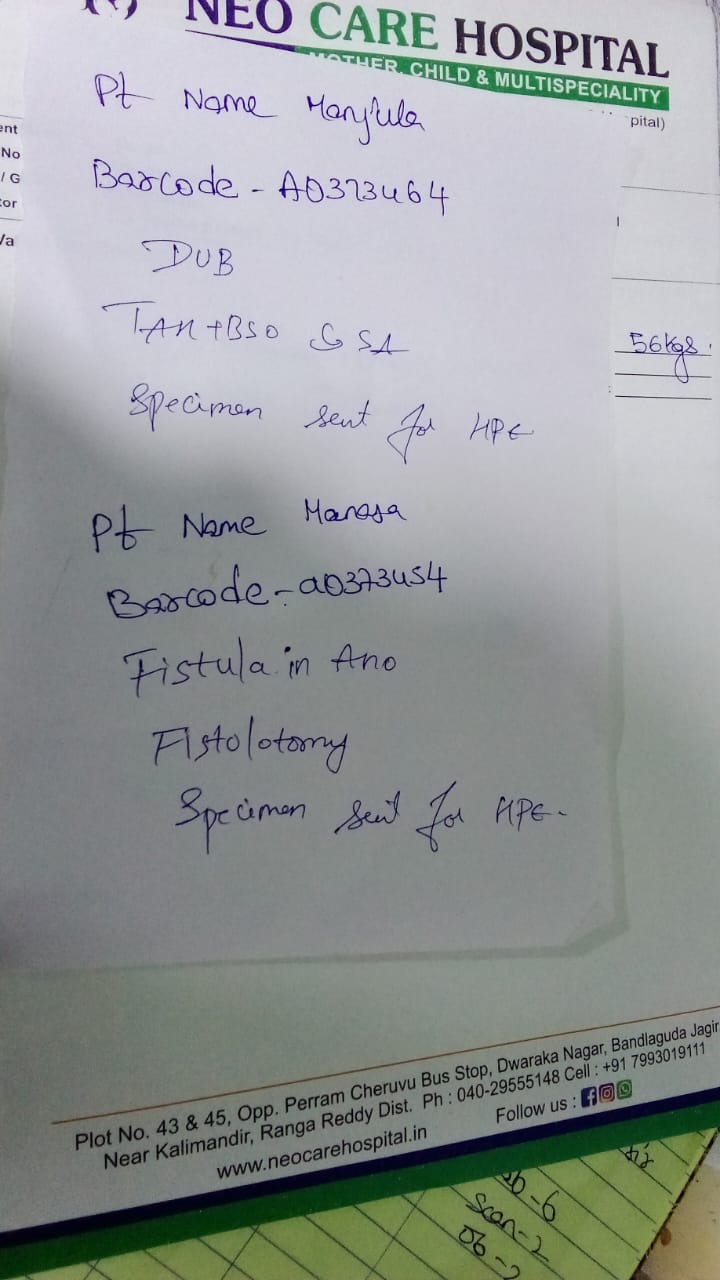 NEO CARE HOSPITAL
MOTHER, CHILD & MULTISPECIALITY
pital)
ent
No
/ G
tor
Va
Pt Name Manjula
Barcode - A0373464
DUB
TAH+BSO C̄ SA
Specimen sent for HPE
56kgs
Pt Name Manasa
Barcode - a0373454
Fistula in Ano
Fistolotomy
Specimen sent for HPE -
Plot No. 43 & 45, Opp. Perram Cheruvu Bus Stop, Dwaraka Nagar, Bandlaguda Jagir
Near Kalimandir, Ranga Reddy Dist. Ph : 040-29555148 Cell : +91 7993019111
www.neocarehospital.in
Follow us :
-6
Scan-2
06-2